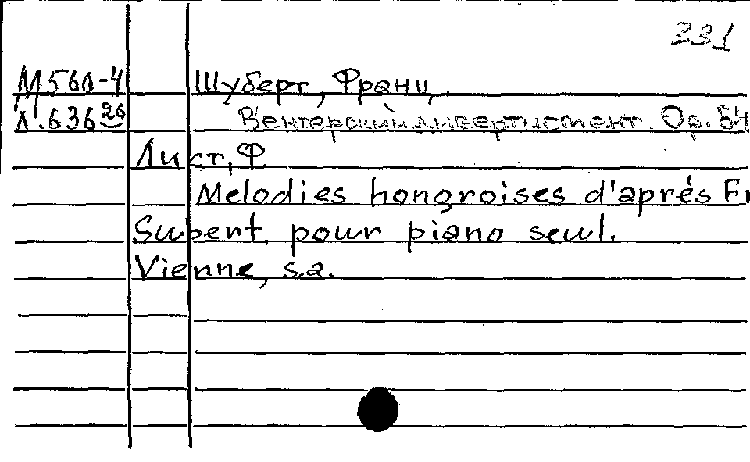 231
М560-4 Шуберт, Франц
Л.636 26 Венгерский дивертисмент. Op. 54
Лист, Ф
Melodies hongroises d'aprés Fr
Subent pour piano seul.
Vienne, s.a.